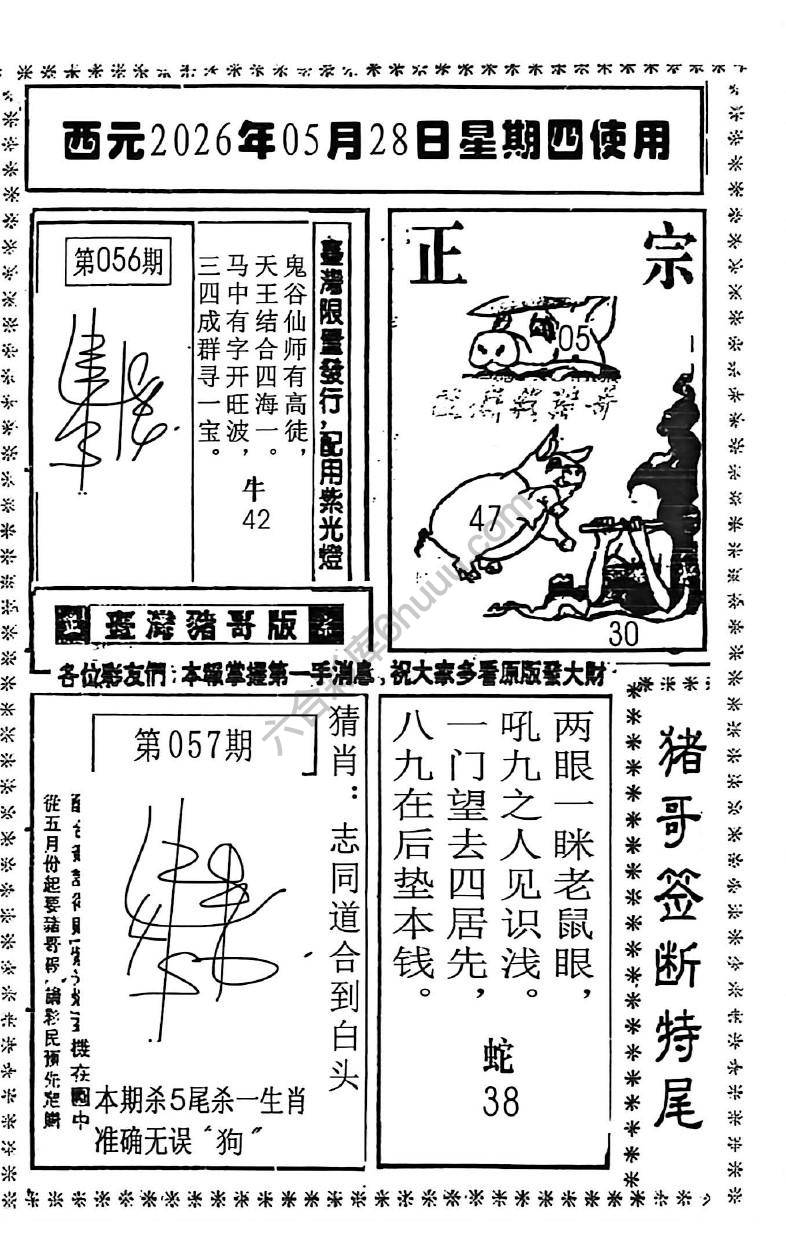 西元2026年05月28日星期四使用
第056期
鬼谷仙师有高徒，
天王结合四海一。
马中有字开旺波，
三四成群寻一宝。
牛
42
臺灣限量發行，配用紫光燈
正宗
05
47
30
臺灣豬哥版
各位彩友們：本報掌握第一手消息，祝大家多看原版發大財
第057期
猜肖：志同道合到白头
從五月份起要豬哥報，請彩民預先定購
本期杀5尾杀一生肖
准确无误“狗”
两眼一眯老鼠眼，
吼九之人见识浅。
一门望去四居先，
八九在后垫本钱。
蛇
38
猪哥签断特尾
六合彩库6huuu.com